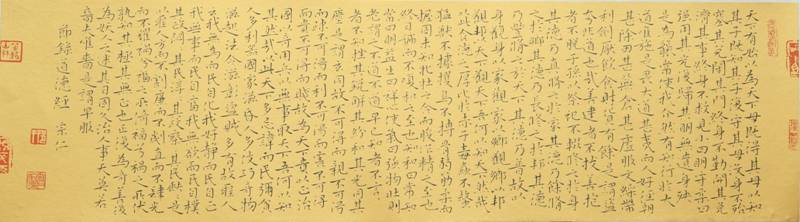 天下有始以為天下母既得其母以知
其子既知其子復守其母沒身不殆
塞其兌閉其門終身不勤開其兌
濟其事終身不救見小曰明守柔曰
強用其光復歸其明無遺身殃
是為習常使我介然有知行於大
道唯施是畏大道甚夷而人好徑朝
甚除田甚蕪倉甚虛服文綵帶
利劍厭飲食財貨有餘是謂盜
夸非道也哉善建者不拔善抱
者不脫子孫以祭祀不輟修之於身
其德乃真修之於家其德乃餘修
之於鄉其德乃長修之於邦其德
乃豐修之於天下其德乃普故以
身觀身以家觀家以鄉觀鄉以邦
觀邦以天下觀天下吾何以知天下然哉
以此含德之厚比於赤子毒蟲不螫
猛獸不據攫鳥不搏骨弱筋柔而
握固未知牝牡之合而朘作精之至也
終日號而不嗄和之至也知和曰常知
常曰明益生曰祥心使氣曰強物壯則
老謂之不道不道早已知者不言言
者不知挫其銳解其紛和其光同其
塵是謂玄同故不可得而親不可得
而疏不可得而利不可得而害不可得
而貴不可得而賤故為天下貴以正治
國以奇用兵以無事取天下吾何以知
其然哉以此天下多忌諱而民彌貧
人多利器國家滋昏人多伎巧奇物
滋起法令滋彰盜賊多有故聖人
云我無為而民自化我好靜而民自正
我無事而民自富我無欲而民自樸
其政悶悶其民淳淳其政察察其民缺缺是
以聖人方而不割廉而不劌直而不肆光
而不耀禍兮福之所倚福兮禍之所伏
孰知其極其無正也正復為奇善復
為妖人之迷其日固久治人事天莫若
嗇夫唯嗇是謂早服
節錄道德經 宗仁